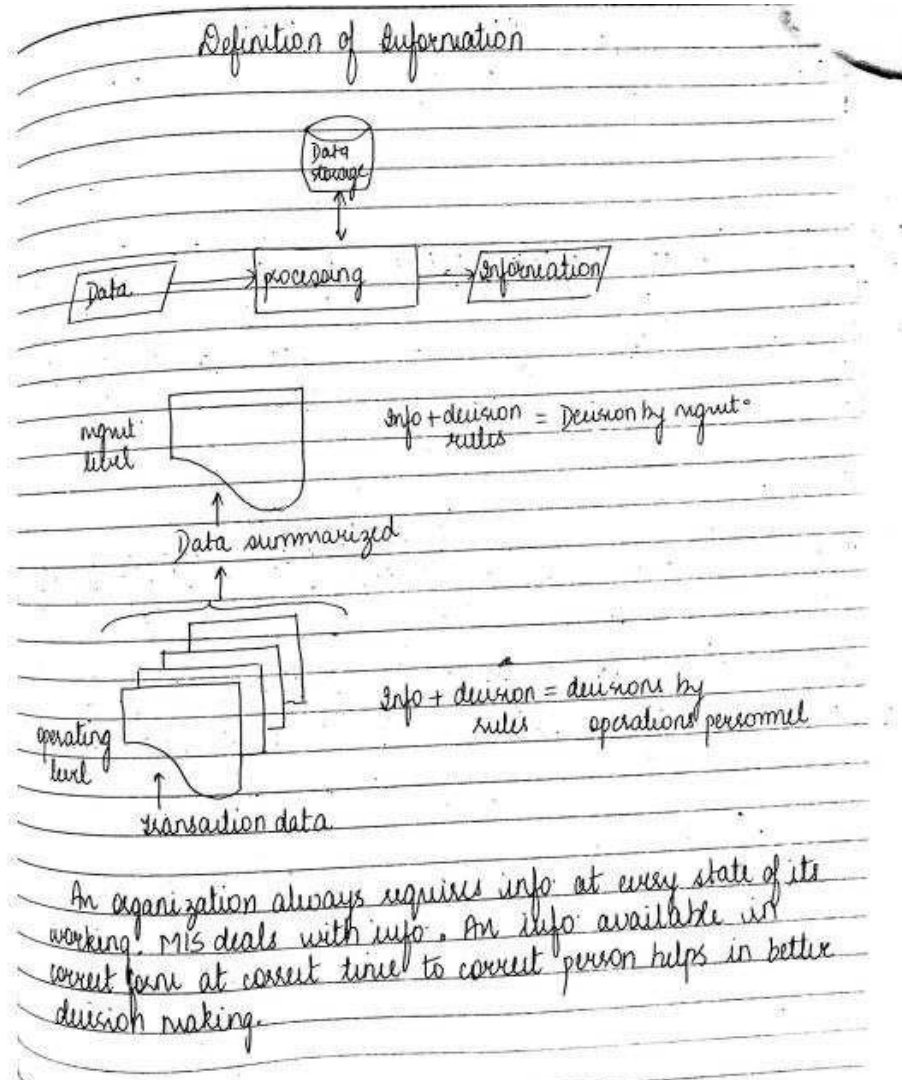 Definition of Information
Data
storage
Data
processing
Information
mgmt
level
Info + decision = Decision by mgmt.
rules
Data summarized
operating
level
Info + decision = decisions by
rules operations personnel
transaction data
An organization always requires info at every state of its
working. MIS deals with info. An info available in
correct form at correct time to correct person helps in better
decision making.